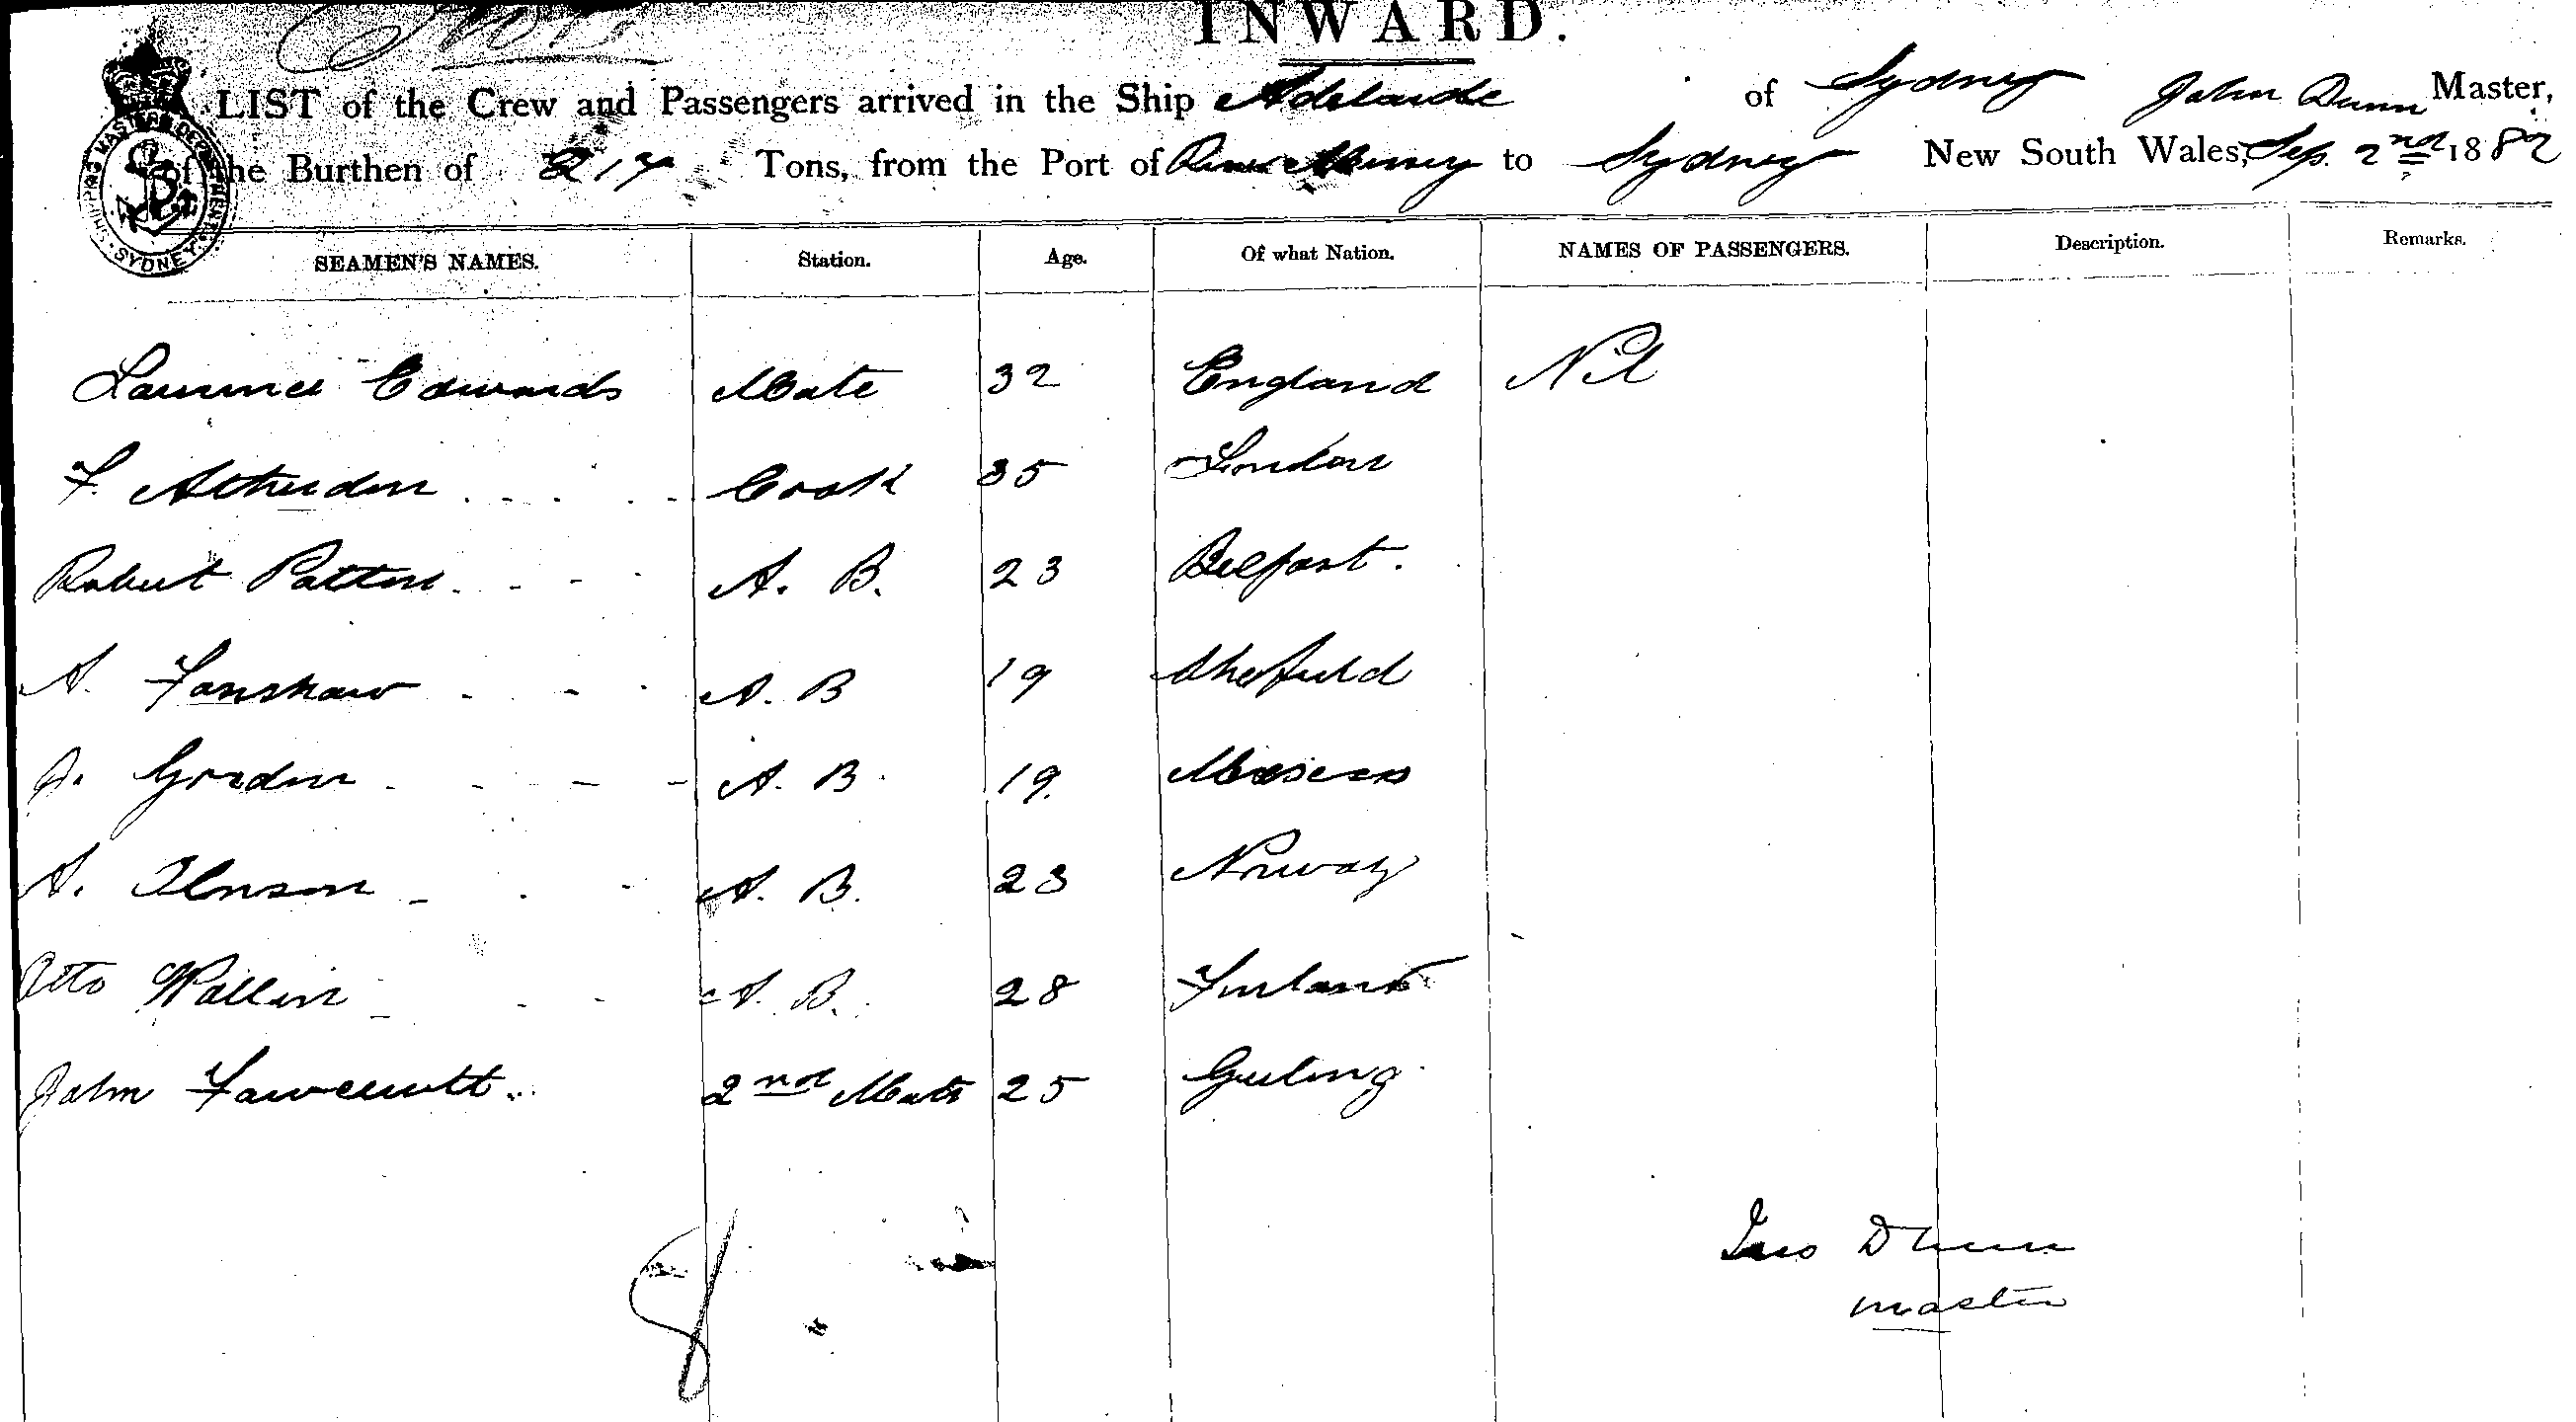 INWARD.
LIST of the Crew and Passengers arrived in the Ship Adelaide of Sydney John Dunn Master,
of the Burthen of 217 Tons, from the Port of River Murray to Sydney New South Wales, Sep. 2nd 1882
SHIPPING MASTER'S DEPARTMENT SYDNEY
SEAMEN'S NAMES. Station. Age. Of what Nation. NAMES OF PASSENGERS. Description. Remarks.
Laurence Edwards Mate 32 England Nil
F. Atherden Cook 35 London
Robert Patten A. B. 23 Belfast.
A. Fanshaw A. B 19 Shefield
J. Gordon A. B 19. 
A. A. B. 23 Norway
Otto Wallin A. B. 28 Finland
John 2nd Mate 25
Jno Dunn
master